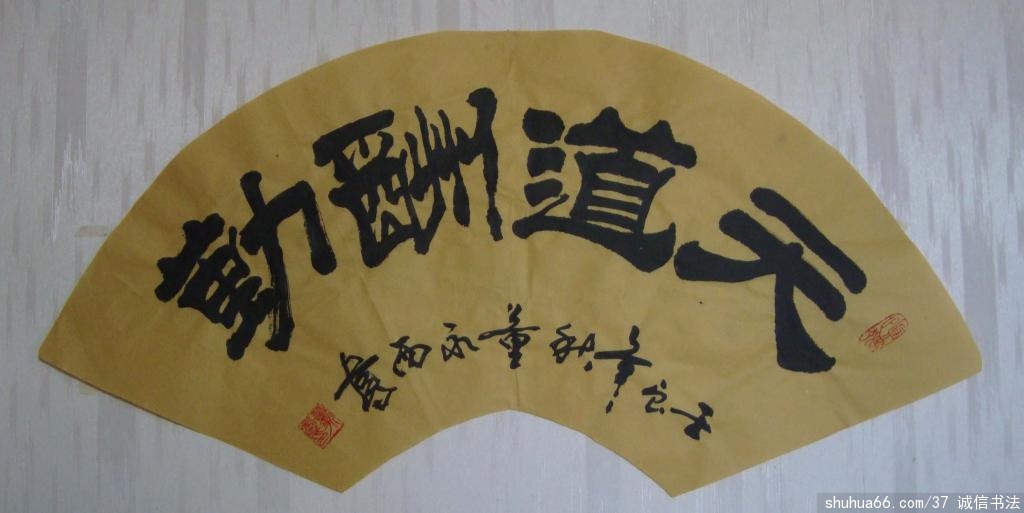 天道酬勤
壬辰年秋董永西
shuhua66.com/37 诚信书法